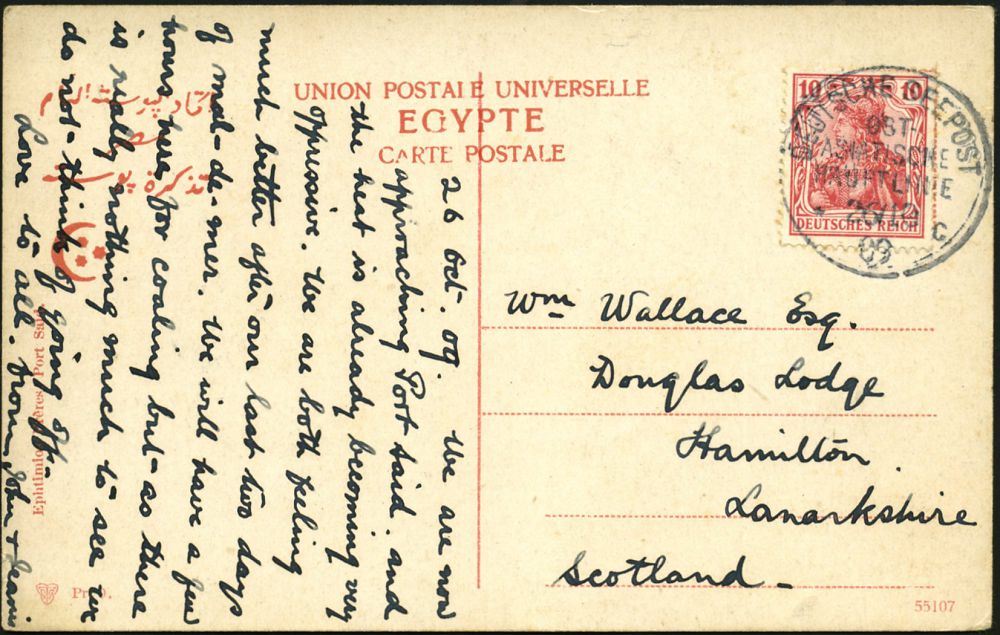 UNION POSTALE UNIVERSELLE
EGYPTE
CARTE POSTALE
تذكرة بوسته
26 Oct. 09. We are now
approaching Port Said and
the heat is already becoming very
oppressive. We are both feeling
much better after our last two days
of mal-de-mer. We will have a few
hours here for coaling but as there
is really nothing much to see we
do not think of going off.
Love to all. from John +
10 10
DEUTSCHES REICH
DEUTSCHE SEEPOST
OST-
ASIATISCHE
HAUPTLINIE
09
Wm Wallace Esq.
Douglas Lodge
Hamilton.
Lanarkshire
Scotland -
Frères Port Said
55107